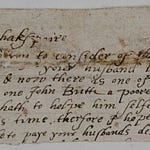 shakspaire
to consider of th
your husband
& now there is one of
one John Butts a poore
hath to helpe him selfe
s time, therfore I hope
to paye your husbands de